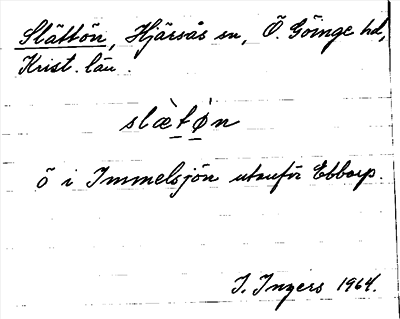 Slättön, Hjärsås sn, Ö. Göinge hd,
Krist. län.
slæ̀tø̀n
ö i Immelsjön utanför Ebbarp.
I. Ingers 1964.